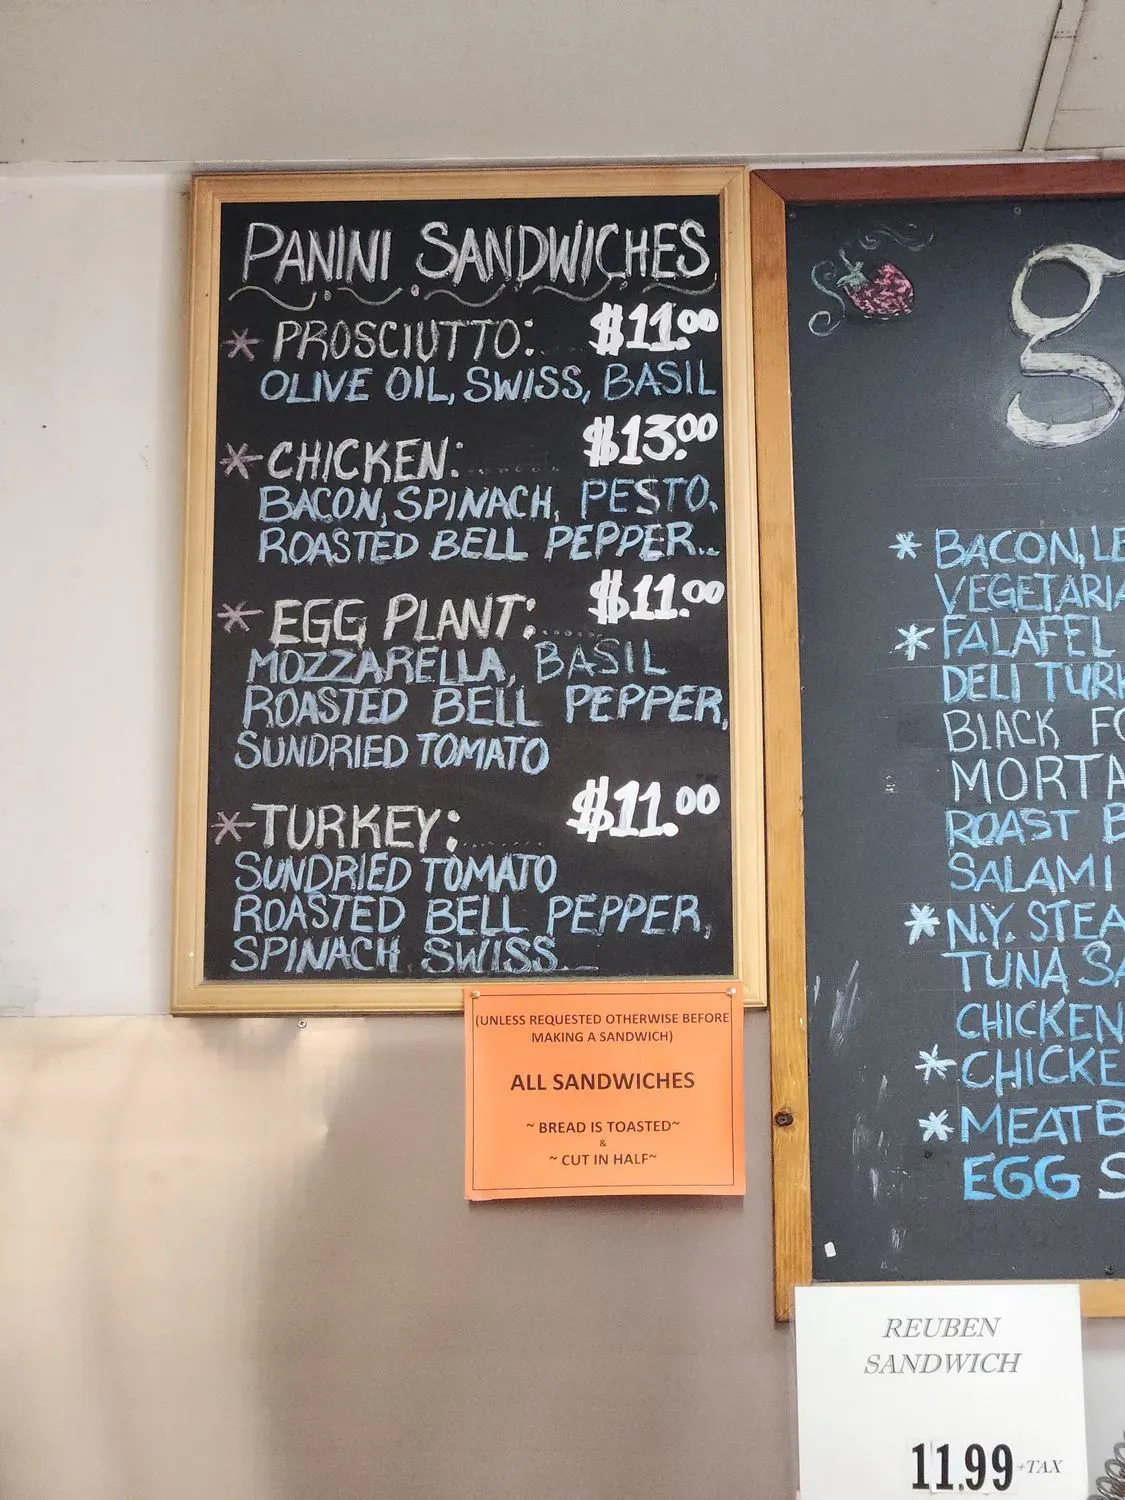 PANINI SANDWICHES
* PROSCIUTTO: $11.00
OLIVE OIL, SWISS, BASIL
* CHICKEN: $13.00
BACON, SPINACH, PESTO,
ROASTED BELL PEPPER...
* EGG PLANT: $11.00
MOZZARELLA, BASIL
ROASTED BELL PEPPER,
SUNDRIED TOMATO
* TURKEY: $11.00
SUNDRIED TOMATO
ROASTED BELL PEPPER,
SPINACH SWISS
(UNLESS REQUESTED OTHERWISE BEFORE
MAKING A SANDWICH)
ALL SANDWICHES
~ BREAD IS TOASTED~
&
~ CUT IN HALF~
g
* BACON, LE
VEGETARIA
* FALAFEL
DELI TURK
BLACK FO
MORTA
ROAST B
SALAMI
* N.Y. STEA
TUNA SA
CHICKEN
* CHICKE
* MEATB
EGG S
REUBEN
SANDWICH
11.99 +TAX